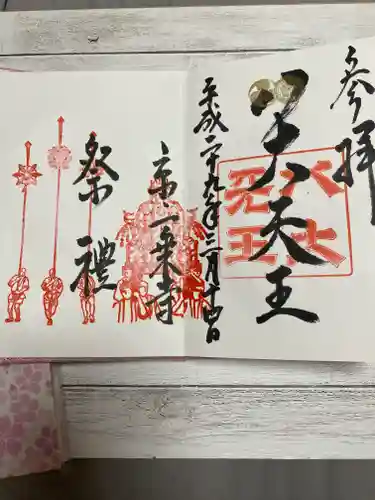 参拝
八大天王
八大
天王
平成二十九年三月十四日
京一乗寺
祭禮